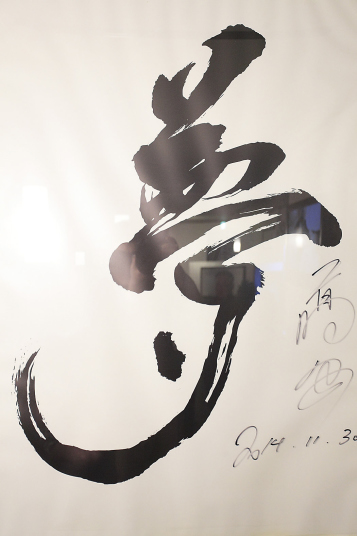 夢
2014.11.30